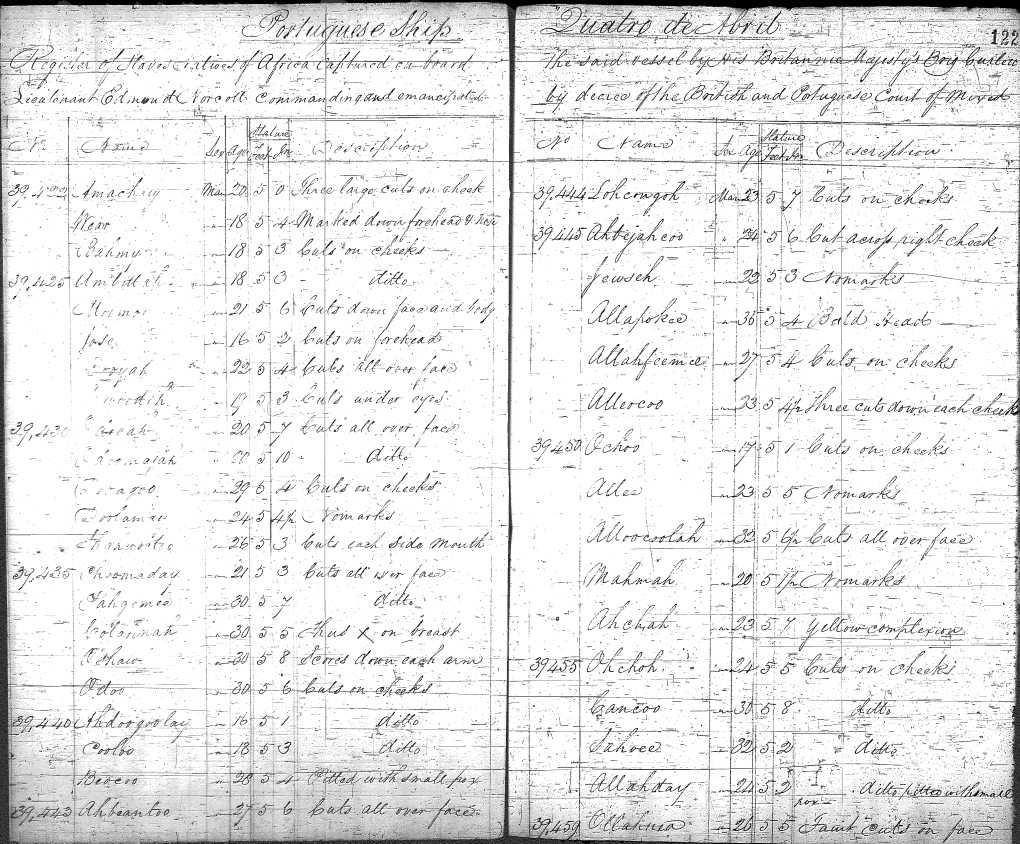 Portuguese Ship
Register of Slaves Natives of Africa Captured on board
Lieutenant Edmond Norcott commanding and emancipated
No. Name Sex Age Stature Feet In Description
39,422 Amachay Man 20 5 0 Three large cuts on cheek
" 18 5 4 Marked down forehead & nose
Bahmy " 18 5 3 Cuts on cheeks
39,425 " 18 5 3 ditto
" 21 5 6 Cuts down face and body
Jose " 16 5 2 Cuts on forehead
" 22 5 4 Cuts all over face
" 19 5 3 Cuts under eyes
39,430 " 20 5 7 Cuts all over face
" 5 10 ditto
" 29 5 4 Cuts on cheeks
Doolamai " 24 5 4½ No marks
" 26 5 3 Cuts each side mouth
39,435 Choomaday " 21 5 3 Cuts all over face
Fahgemee " 30 5 7 ditto
Colannah " 30 5 5 Thus x on breast
Oshaw " 30 5 8 Scores down each arm
Odoo " 30 5 6 Cuts on cheeks
39,440 Ahdoogoolay " 16 5 1 ditto
Cooloo " 18 5 3 ditto
Beocoo " 28 5 4 Pitted with small pox
39,443 Ahbeantoo " 27 5 6 Cuts all over face
Quatro de Abril
122
The said vessel by His Britannic Majesty's Brig Curlew
by decree of the British and Portuguese Court of Mixed
No Name Sex Age Stature Feet In Description
39,444 Lohcongoh Man 23 5 7 Cuts on cheeks
39,445 Ahbejahcoo " 24 5 6 Cut across right cheek
Jewseh " 22 5 3 No marks
Allapokee " 36 5 4 Bald Head
Allahfeemee " 27 5 4 Cuts on cheeks
Alleocoo " 23 5 4½ Three cuts down each cheek
39450 Ochoo " 17 5 1 Cuts on cheeks
Allee " 23 5 5 No marks
Alloocoolah " 32 5 6½ Cuts all over face
Mahmah " 20 5 1½ No marks
Ahchah " 23 5 7 Yellow complexion
39455 Ohchoh " 24 5 5 Cuts on cheeks
Cancoo " 30 5 8 ditto
Sahvee " 32 5 2 ditto
Allahday " 24 5 2 ditto pitted with small
pox
39,459 Ollakusa " 26 5 5 Faint cuts on face